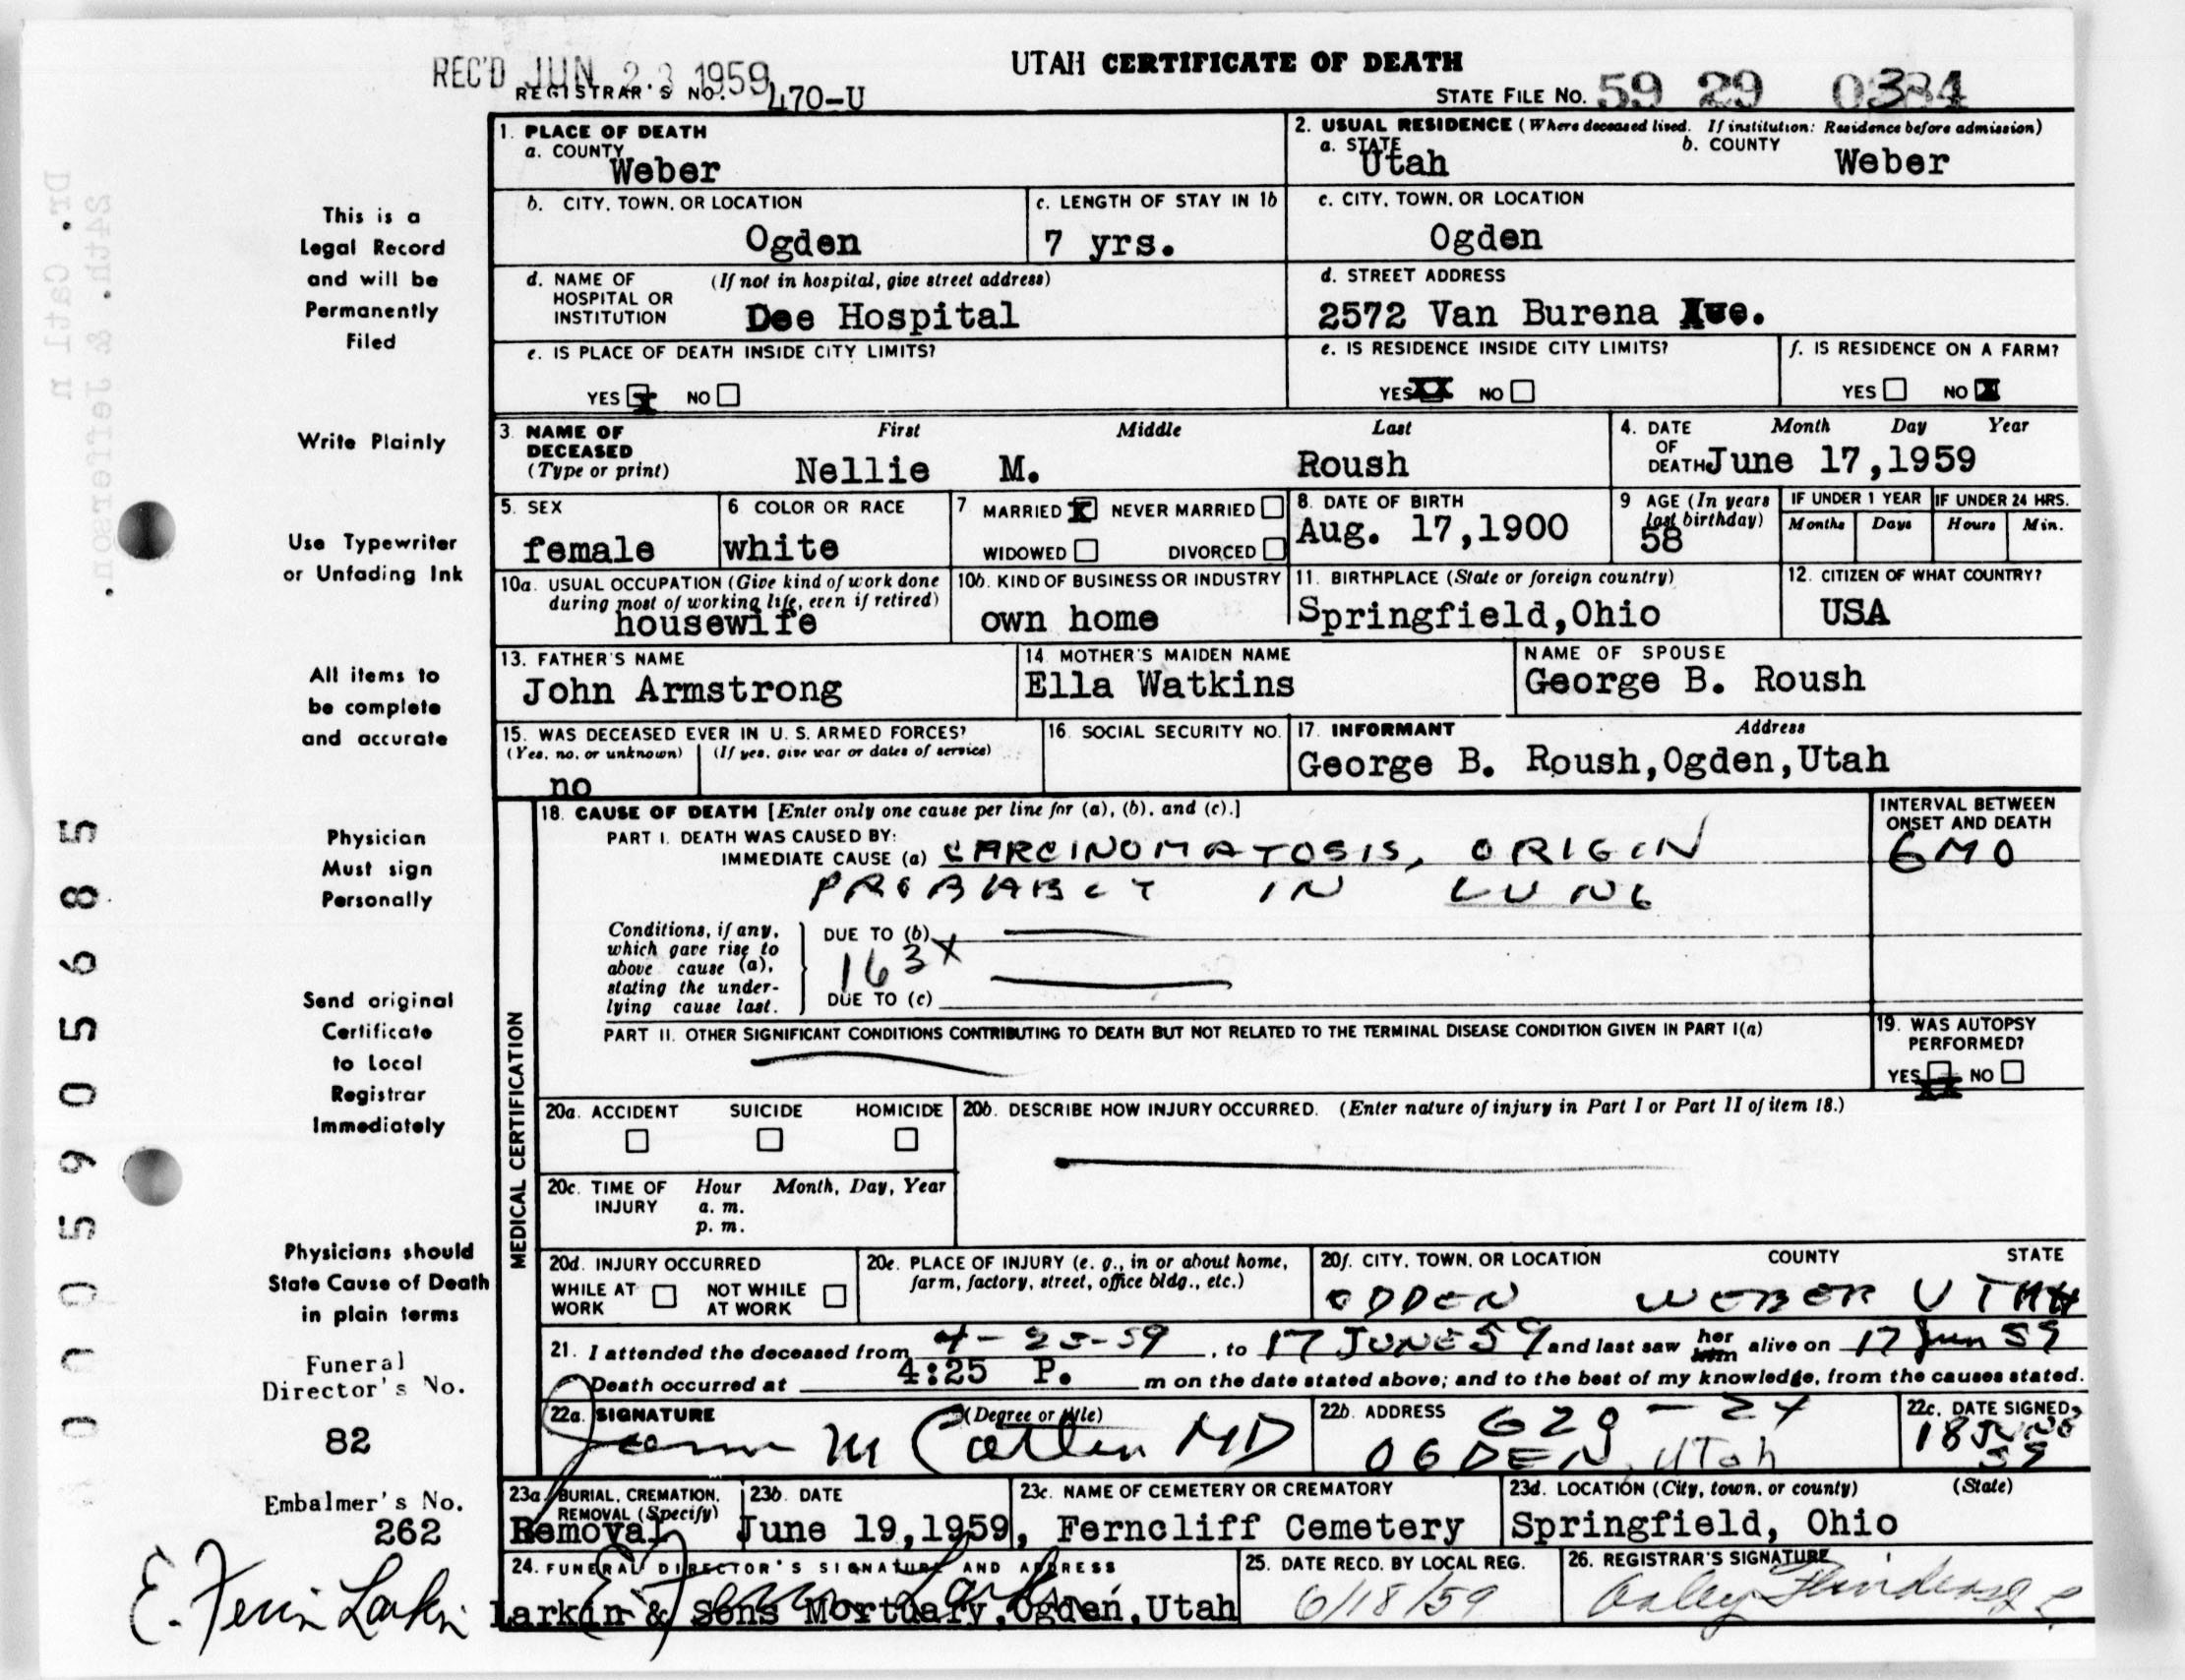 UTAH CERTIFICATE OF DEATH
REC'D JUN 23 1959
REGISTRAR'S NO. 470-U
STATE FILE NO. 59 29 0384
1. PLACE OF DEATH
a. COUNTY
Weber
2. USUAL RESIDENCE (Where deceased lived. If institution: Residence before admission)
a. STATE b. COUNTY
Utah Weber
b. CITY, TOWN, OR LOCATION
Ogden
c. LENGTH OF STAY IN 1b
7 yrs.
c. CITY, TOWN, OR LOCATION
Ogden
d. NAME OF HOSPITAL OR INSTITUTION (If not in hospital, give street address)
Dee Hospital
d. STREET ADDRESS
2572 Van Burena Ave.
e. IS PLACE OF DEATH INSIDE CITY LIMITS?
YES NO
e. IS RESIDENCE INSIDE CITY LIMITS?
YES NO
f. IS RESIDENCE ON A FARM?
YES NO
3. NAME OF DECEASED (Type or print) First Middle Last
Nellie M. Roush
4. DATE OF DEATH Month Day Year
June 17,1959
5. SEX
female
6 COLOR OR RACE
white
7 MARRIED NEVER MARRIED
WIDOWED DIVORCED
8. DATE OF BIRTH
Aug. 17,1900
9 AGE (In years last birthday)
58
IF UNDER 1 YEAR IF UNDER 24 HRS.
Months Days Hours Min.
10a. USUAL OCCUPATION (Give kind of work done during most of working life, even if retired)
housewife
10b. KIND OF BUSINESS OR INDUSTRY
own home
11. BIRTHPLACE (State or foreign country)
Springfield,Ohio
12. CITIZEN OF WHAT COUNTRY?
USA
13. FATHER'S NAME
John Armstrong
14 MOTHER'S MAIDEN NAME
Ella Watkins
NAME OF SPOUSE
George B. Roush
15. WAS DECEASED EVER IN U. S. ARMED FORCES?
(Yes, no, or unknown) (If yes, give war or dates of service)
no
16. SOCIAL SECURITY NO.
17. INFORMANT Address
George B. Roush,Ogden,Utah
MEDICAL CERTIFICATION
18. CAUSE OF DEATH [Enter only one cause per line for (a), (b), and (c).]
PART I. DEATH WAS CAUSED BY:
IMMEDIATE CAUSE (a) CARCINOMATOSIS, ORIGIN
PROBABLY IN LUNG
INTERVAL BETWEEN ONSET AND DEATH
6 MO
Conditions, if any, which gave rise to above cause (a), stating the underlying cause last.
DUE TO (b)
163X
DUE TO (c)
PART II. OTHER SIGNIFICANT CONDITIONS CONTRIBUTING TO DEATH BUT NOT RELATED TO THE TERMINAL DISEASE CONDITION GIVEN IN PART I(a)
19. WAS AUTOPSY PERFORMED?
YES NO
20a. ACCIDENT SUICIDE HOMICIDE
20b. DESCRIBE HOW INJURY OCCURRED. (Enter nature of injury in Part I or Part II of item 18.)
20c. TIME OF INJURY Hour Month, Day, Year
a. m.
p. m.
20d. INJURY OCCURRED
WHILE AT WORK NOT WHILE AT WORK
20e. PLACE OF INJURY (e. g., in or about home, farm, factory, street, office bldg., etc.)
20f. CITY, TOWN, OR LOCATION COUNTY STATE
ODDEN WEBER UTAH
21. I attended the deceased from 4-25-59, to 17 JUNE 59 and last saw her him alive on 17 Jun 59
Death occurred at 4:25 P. m on the date stated above; and to the best of my knowledge, from the causes stated.
22a. SIGNATURE (Degree or title)
M Catlin MD
22b. ADDRESS
629 - 24
OGDEN, Utah
22c. DATE SIGNED
18 JUNE 59
23a. BURIAL, CREMATION, REMOVAL (Specify)
Removal
23b. DATE
June 19,1959,
23c. NAME OF CEMETERY OR CREMATORY
Ferncliff Cemetery
23d. LOCATION (City, town, or county) (State)
Springfield, Ohio
24. FUNERAL DIRECTOR'S SIGNATURE AND ADDRESS
Larkin & Sons Mortuary,Ogden,Utah
25. DATE RECD. BY LOCAL REG.
6/18/59
26. REGISTRAR'S SIGNATURE
This is a
Legal Record
and will be
Permanently
Filed
Write Plainly
Use Typewriter
or Unfading Ink
All items to
be complete
and accurate
Physician
Must sign
Personally
Send original
Certificate
to Local
Registrar
Immediately
Physicians should
State Cause of Death
in plain terms
Funeral
Director's No.
82
Embalmer's No.
262
E. Ferrin Larkin
000590 5685